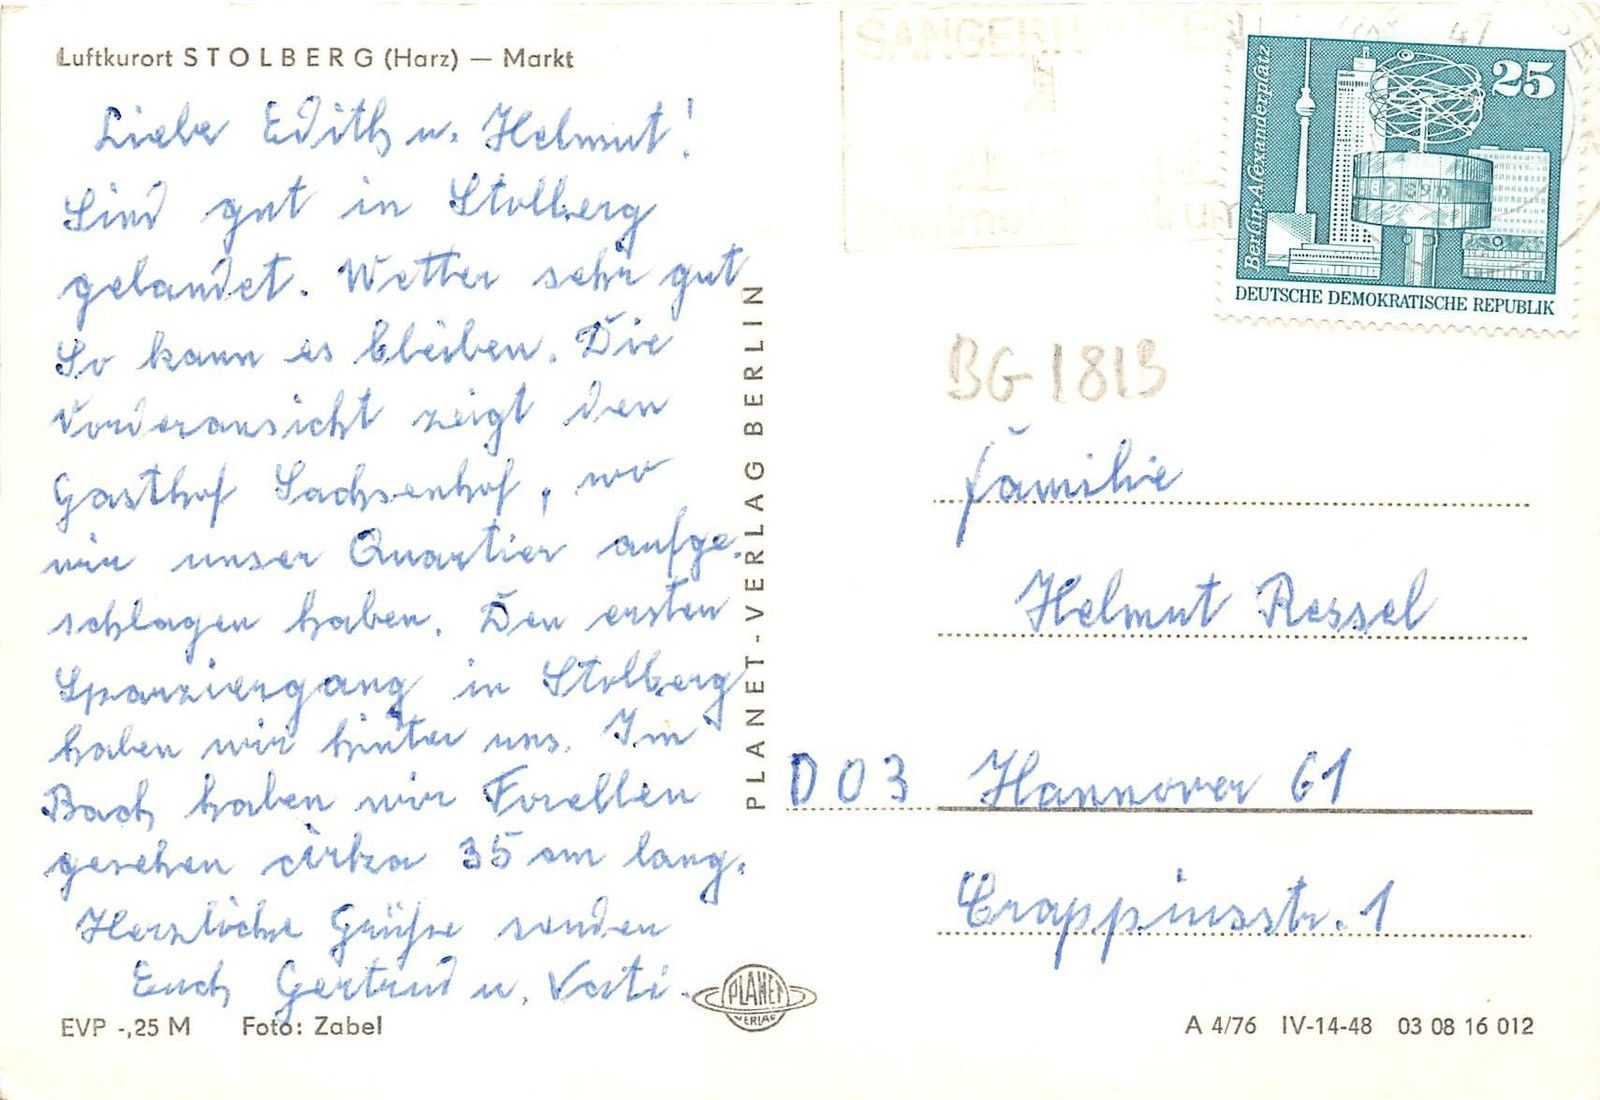 Luftkurort STOLBERG (Harz) — Markt
Liebe Edith u. Helmut!
Sind gut in Stolberg
gelandet. Wetter sehr gut
So kann es bleiben. Die
Vorderansicht zeigt den
Gasthof Sachsenhof, wo
wir unser Quartier aufge-
schlagen haben. Den ersten
Spanziergang in Stolberg
haben wir hinter uns. Im
Bach haben wir Forellen
gesehen cirka 35 cm lang.
Herzliche Grüße senden
Euch Gertrud u. Vati.
EVP -,25 M Foto: Zabel
PLANET-VERLAG BERLIN
PLANET
VERLAG
SANGERHAUSEN
Berlin-Alexanderplatz
25
DEUTSCHE DEMOKRATISCHE REPUBLIK
BG 1813
Familie
Helmut Ressel
D 03 Hannover 61
Crappiusstr. 1
A 4/76 IV-14-48 03 08 16 012